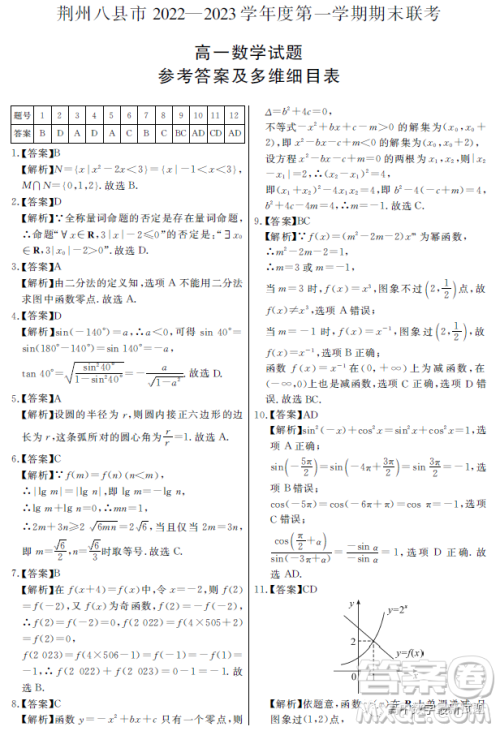 荆州八县市 2022—2023 学年度第一学期期末联考
高一数学试题
参考答案及多维细目表
题号 1 2 3 4 5 6 7 8 9 10 11 12
答案 B D A D A C B C BC AD CD AD
1.【答案】B
【解析】N={x|x²-2x<3}={x|-1<x<3},
M∩N={0,1,2}.故选 B.
2.【答案】D
【解析】∵全称量词命题的否定是存在量词命题,
∴命题“∀x∈R,3|x|-2≤0”的否定是:“∃x₀
∈R,3|x₀|-2>0”.故选 D.
3.【答案】A
【解析】由二分法的定义知,选项 A 不能用二分法
求图中函数零点.故选 A.
4.【答案】D
【解析】sin(-140°)=a,∴a<0,可得 sin 40°=
sin(180°-140°)=sin 140°=-a,
tan 40°=√(sin²40°/(1-sin²40°))=-a/√(1-a²).故选 D.
5.【答案】A
【解析】设圆的半径为 r,则圆内接正六边形的边
长为 r,这条弧所对的圆心角为 r/r=1.故选 A.
6.【答案】C
【解析】∵f(m)=f(n)(n<m),
∴|lg m|=|lg n|,即 lg m=-lg n,∴mn=1,
∴2m+3n≥2√(6mn)=2√6,当且仅当 2m=3n,
即 m=√6/2,n=√6/3时取等号.故选 C.
7.【答案】B
【解析】在 f(x+4)=f(x)中,令 x=-2,则 f(2)
=f(-2),又 f(x)为奇函数,f(2)=-f(-2),
∴f(2)=f(-2)=0,f(2 022)=f(4×505+2)
=f(2)=0,
f(2 023)=f(4×506-1)=f(-1)=-f(1)=
-1,∴f(2 022)+f(2 023)=0-1=-1.故
选 B.
8.【答案】C
【解析】函数 y=-x²+bx+c 只有一个零点,则
Δ=b²+4c=0,
不等式-x²+bx+c-m>0 的解集为(x₀,x₀+
2),即 x²-bx-c+m<0 的解集为(x₀,x₀+2).
设方程 x²-bx-c+m=0 的两根为 x₁,x₂,则|x₂
-x₁|=2,∴(x₂-x₁)²=4,
即(x₁+x₂)²-4x₁x₂=4,即 b²-4(-c+m)=4,
b²+4c-4m=4,∴m=-1.故选 C.
9.【答案】BC
【解析】∵f(x)=(m²-2m-2)xᵐ 为幂函数,
∴m²-2m-2=1,
∴m=3 或 m=-1,
当 m=3 时,f(x)=x³,图象不过(2,1/2)点,故
f(x)≠x³,选项 A 错误;
当 m=-1 时,f(x)=x⁻¹,图象过点(2,1/2),故
f(x)=x⁻¹,选项 B 正确;
函数 f(x)=x⁻¹在(0,+∞)上为减函数,在
(-∞,0)上也是减函数,选项 C 正确,选项 D 错
误.故选 BC.
10.【答案】AD
【解析】sin²(-x)+cos²x=sin²x+cos²x=1,选
项 A 正确;
sin(-5π/2)=sin(-4π+3π/2)=sin 3π/2=-1,选
项 B 错误;
cos(-5π)=cos(-6π+π)=cos π=-1,选项 C
错误;
cos(π/2+α)/sin(-3π+α)=-sin α/-sin α=1,选项 D 正确.故
选 AD.
11.【答案】CD
y
y=2ˣ
2
y=f(x)
O
x
【解析】依题意,函数
图象过(1,2)点,